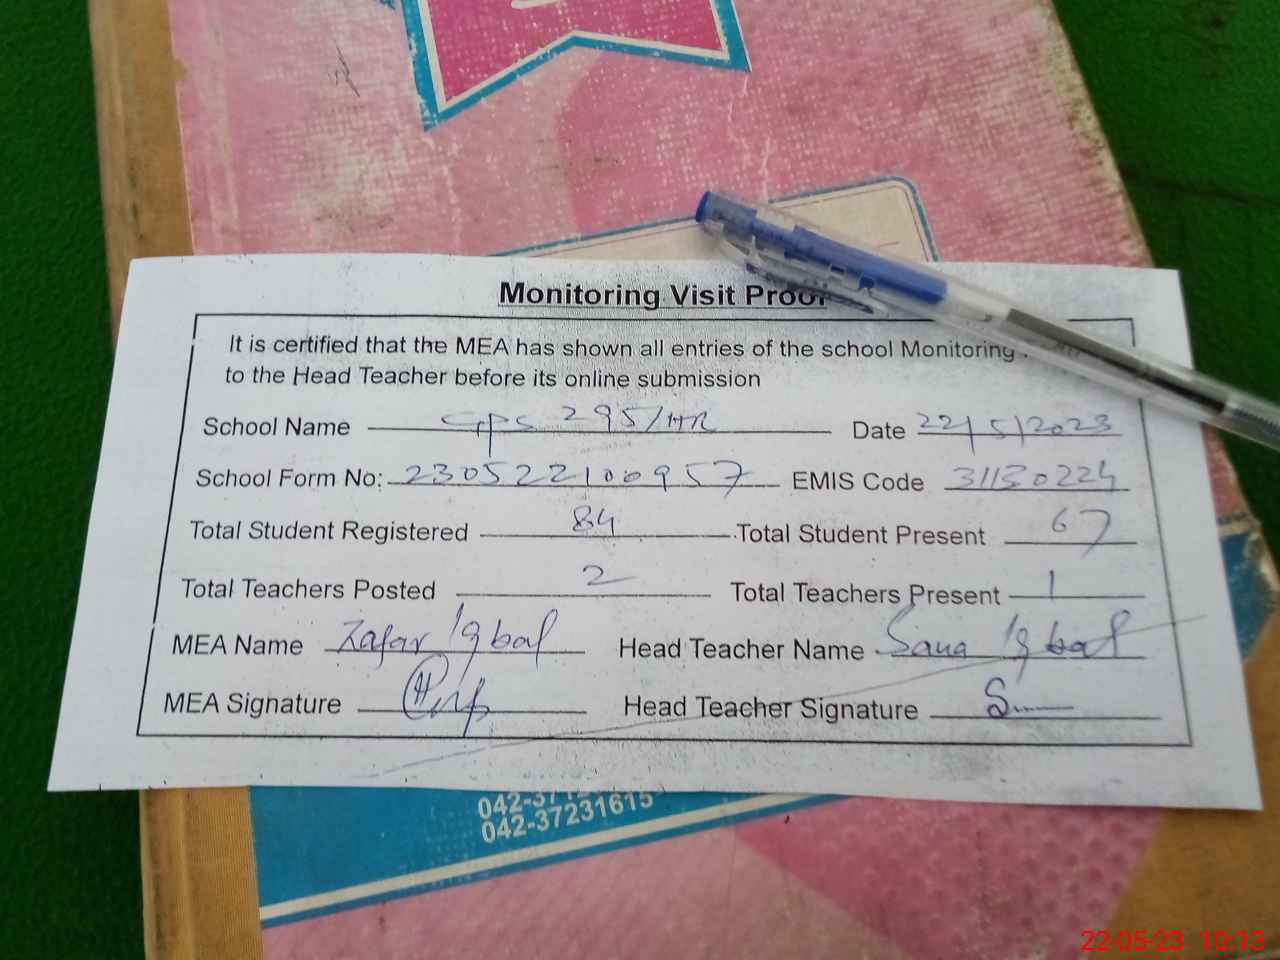 Monitoring Visit Proof
It is certified that the MEA has shown all entries of the school Monitoring
to the Head Teacher before its online submission
School Name GPS 295/HR Date 22/5/2023
School Form No: 230522100957 EMIS Code 31130224
Total Student Registered 84 Total Student Present 67
Total Teachers Posted 2 Total Teachers Present 1
MEA Name Zafar Iqbal Head Teacher Name Sana Iqbal
MEA Signature Head Teacher Signature
042-37231615
22-05-23 10:13